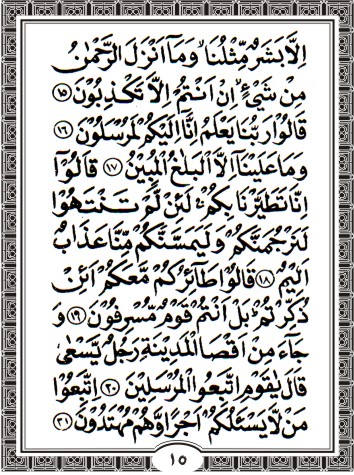 اِلَّا بَشَرٌ مِّثْلُنَا ۙ وَمَاۤ اَنْزَلَ الرَّحْمٰنُ
مِنْ شَیْءٍ ۙ اِنْ اَنْتُمْ اِلَّا تَكْذِبُوْنَ ﴿۱۵﴾
قَالُوْا رَبُّنَا یَعْلَمُ اِنَّاۤ اِلَیْكُمْ لَمُرْسَلُوْنَ ﴿۱۶﴾
وَمَا عَلَیْنَاۤ اِلَّا الْبَلٰغُ الْمُبِیْنُ ﴿۱۷﴾ قَالُوْۤا
اِنَّا تَطَیَّرْنَا بِكُمْ ۚ لَئِنْ لَّمْ تَنْتَهُوْا
لَنَرْجُمَنَّكُمْ وَلَیَمَسَّنَّكُمْ مِّنَّا عَذَابٌ
اَلِیْمٌ ﴿۱۸﴾ قَالُوْا طَآئِرُكُمْ مَّعَكُمْ ؕ اَئِنْ
ذُكِّرْتُمْ ؕ بَلْ اَنْتُمْ قَوْمٌ مُّسْرِفُوْنَ ﴿۱۹﴾ وَ
جَآءَ مِنْ اَقْصَا الْمَدِیْنَةِ رَجُلٌ یَّسْعٰی
قَالَ یٰقَوْمِ اتَّبِعُوا الْمُرْسَلِیْنَ ﴿۲۰﴾ اتَّبِعُوْا
مَنْ لَّا یَسْئَلُكُمْ اَجْرًا وَّهُمْ مُّهْتَدُوْنَ ﴿۲۱﴾
۱۵